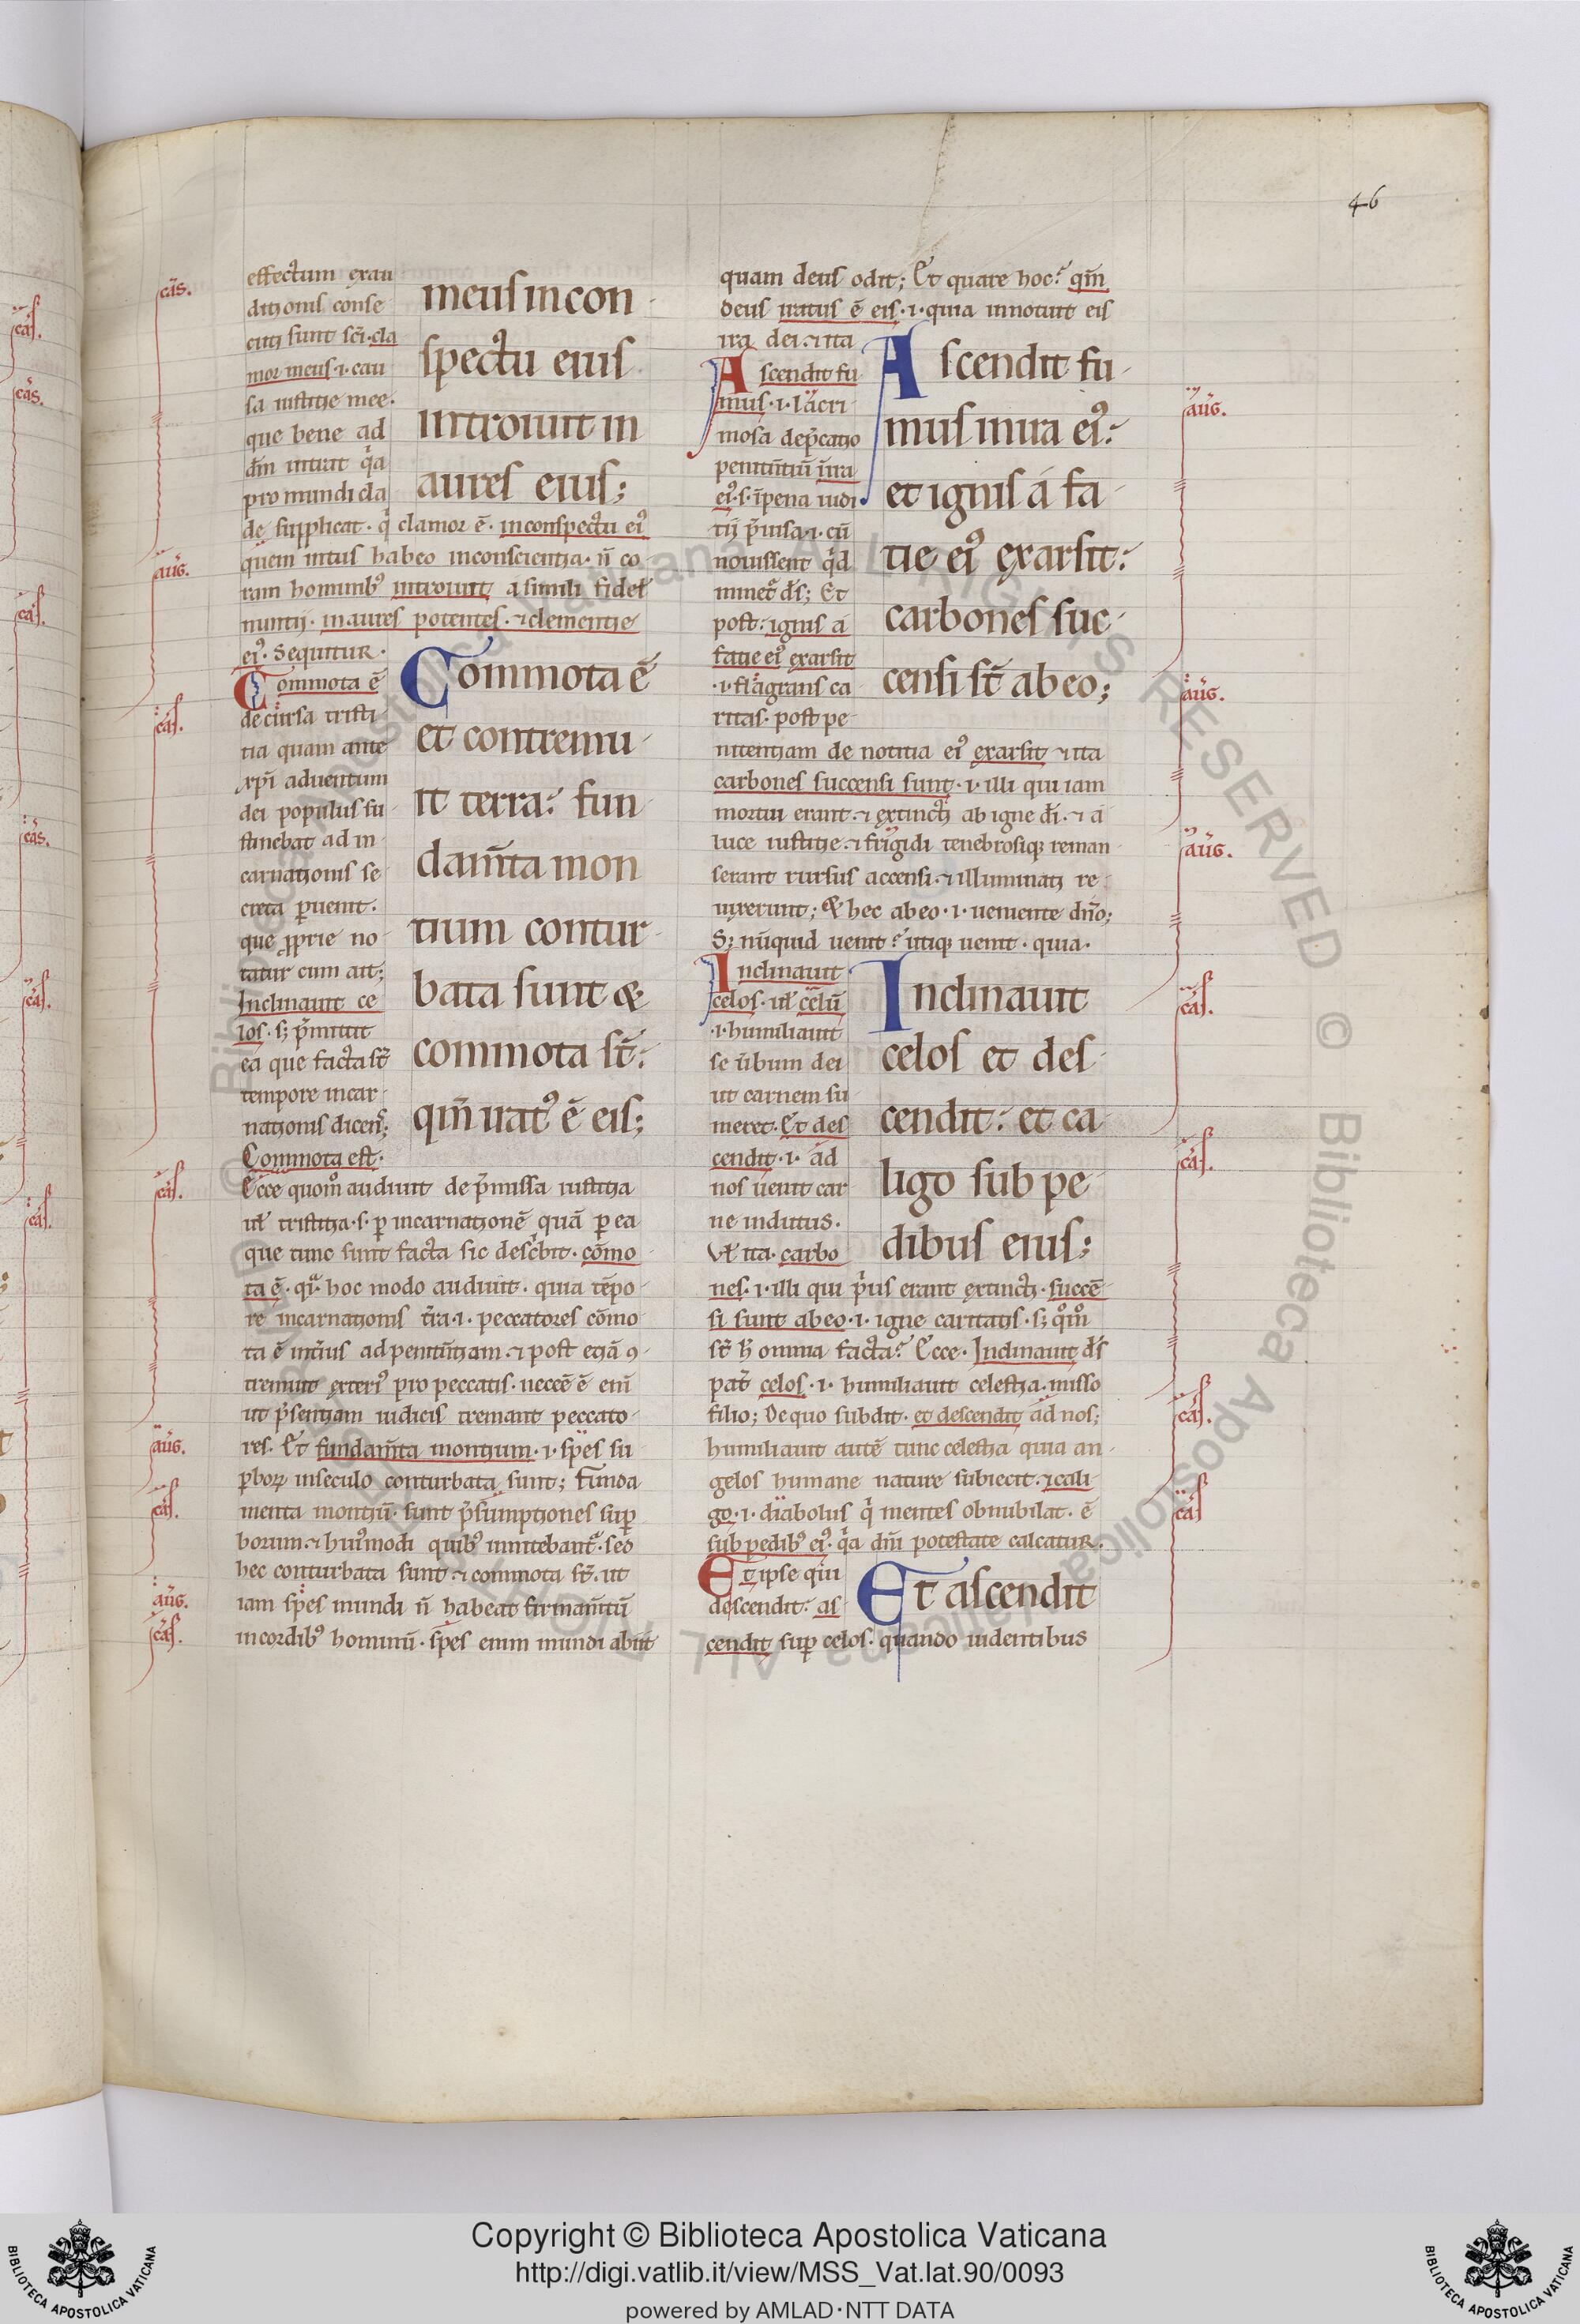 46
effectum exau
ditionis conse
cuti sunt sc̄i · cla
mor meus · i · cau
sa iusticie mee ·
que bene ad
dm̄ intrat q̇a
pro mundi cla
de supplicat · q̇ clamor ē · in conspectu ei᾽
quem intus habeo in conscientia · n̄ co
ram hominib᾽ introiuit a simili fidel̄
nuntij · in aures potentes · ⁊ clementie
ei᾽ · Sequitur ·
meus in con
spectu eius
introiuit in
aures eius;
Commota ē
de cursa tristi
tia quam ante
xp̄i aduentum
dei populus su
stinebat ad in
carnationis se
creta ꝑuenit ·
que ꝓprie no
tatur cum ait;
Inclinauit ce
los · s; p̄mittit
ea que facta st̄
tempore incar
nationis dicens;
Commota est ·
Commota ē
et contremu
it terra: fun
dam̄ta mon
tium contur
bata sunt &
commota st̄:
qm̄ irat᾽ ē eis;
Ecce quom̊ audiuit de p̄missa iusticia
ul̄ tristitia · s · ꝑ incarnationē quā ꝑ ea
que tunc sunt facta sic desc̄bit · cōmo
ta ē · q̄ hoc modo audiuit · quia tēpo
re incarnationis t̄ra · i · peccatores cōmo
ta ē int̄ius ad penitn̄tiam · ⁊ post etiā ꝯ
tremuit exteri᾽ pro peccatis · neccē ē eni᷒
ut p̄sentiam iudicis tremant peccato
res · Et fundam̄ta montium · i · spes su
ꝑboꝝ in seculo conturbata sunt; Funda
menta montiū · sunt p̄sumptiones suꝑ
borum · ⁊ hui᾽modi quib᾽ innitebant᷑ · sed
hec conturbata sunt · ⁊ commota st̄ · ut
iam spes mundi n̄ habeat firmam̄tū
in cordib᾽ hominū · spes enim mundi abiit
quam deus odit; Et quare hoc? qm̄
deus iratus ē eis · i · quia innotuit eis
ira dei · ⁊ ita
Ascendit fu
mus · i · lacri
mosa dep̄catio
penitn̄tiū in ira
ei᾽ · s · in pena iudi
tij p̄uisa · i · cū
nouissent q̇d
minet᷑ ds̄; Et
post · ignis a
facie ei᾽ exarsit
· i · flagrans ca
ritas · post pe
Ascendit fu
mus in ira ei᾽:
et ignis a fa
tie ei᾽ exarsit:
carbones suc
censi st̄ ab eo;
nitentiam de notitia ei᾽ exarsit ⁊ ita
carbones succensi sunt · i · illi qui iam
mortui erant · ⁊ extincti ab igne di̅ · ⁊ a
luce iusticie · ⁊ frigidi tenebrosiq; reman
serant rursus accensi · ⁊ illuminati re
uixerunt; & hec ab eo · i · ueniente dn̄o;
S; nūquid uenit? utiq; uenit · quia ·
Inclinauit
celos · ul̄ celū
· i · humiliauit
se u̅bum dei
ut carnem su
meret · Et des
cendit · i · ad
nos uenit car
ne indutus ·
Vl̄ ita · carbo
Inclinauit
celos et des
cendit: et ca
ligo sub pe
dibus eius;
nes · i · illi qui p̄us erant extincti · succē
si sunt ab eo · i · igne caritatis · s; q̊m̊
st̄ h̄ omnia facta? Ecce · Inclinauit ds̄
pat̄ celos · i · humiliauit celestia · misso
filio; De quo subdit · et descendit ad nos;
humiliauit autē tunc celestia quia an
gelos humane nature subiecit · ⁊ cali
go · i · diabolus q̇ mentes obnubilat · ē
sub pedib᾽ ei᾽ · q̇a dn̄i potestate calcatur ·
Et ipse qui
descendit: as
Et ascendit
cendit suꝑ celos · quando uidentibus
cas̄.
auḡ.
cas̄.
cas̄.
auḡ.
cas̄.
auḡ.
cas̄.
auḡ.
auḡ.
auḡ.
cas̄.
cas̄.
cas̄.
cas̄
Copyright © Biblioteca Apostolica Vaticana
http://digi.vatlib.it/view/MSS_Vat.lat.90/0093
powered by AMLAD·NTT DATA
BIBLIOTECA APOSTOLICA VATICANA
BIBLIOTECA APOSTOLICA VATICANA